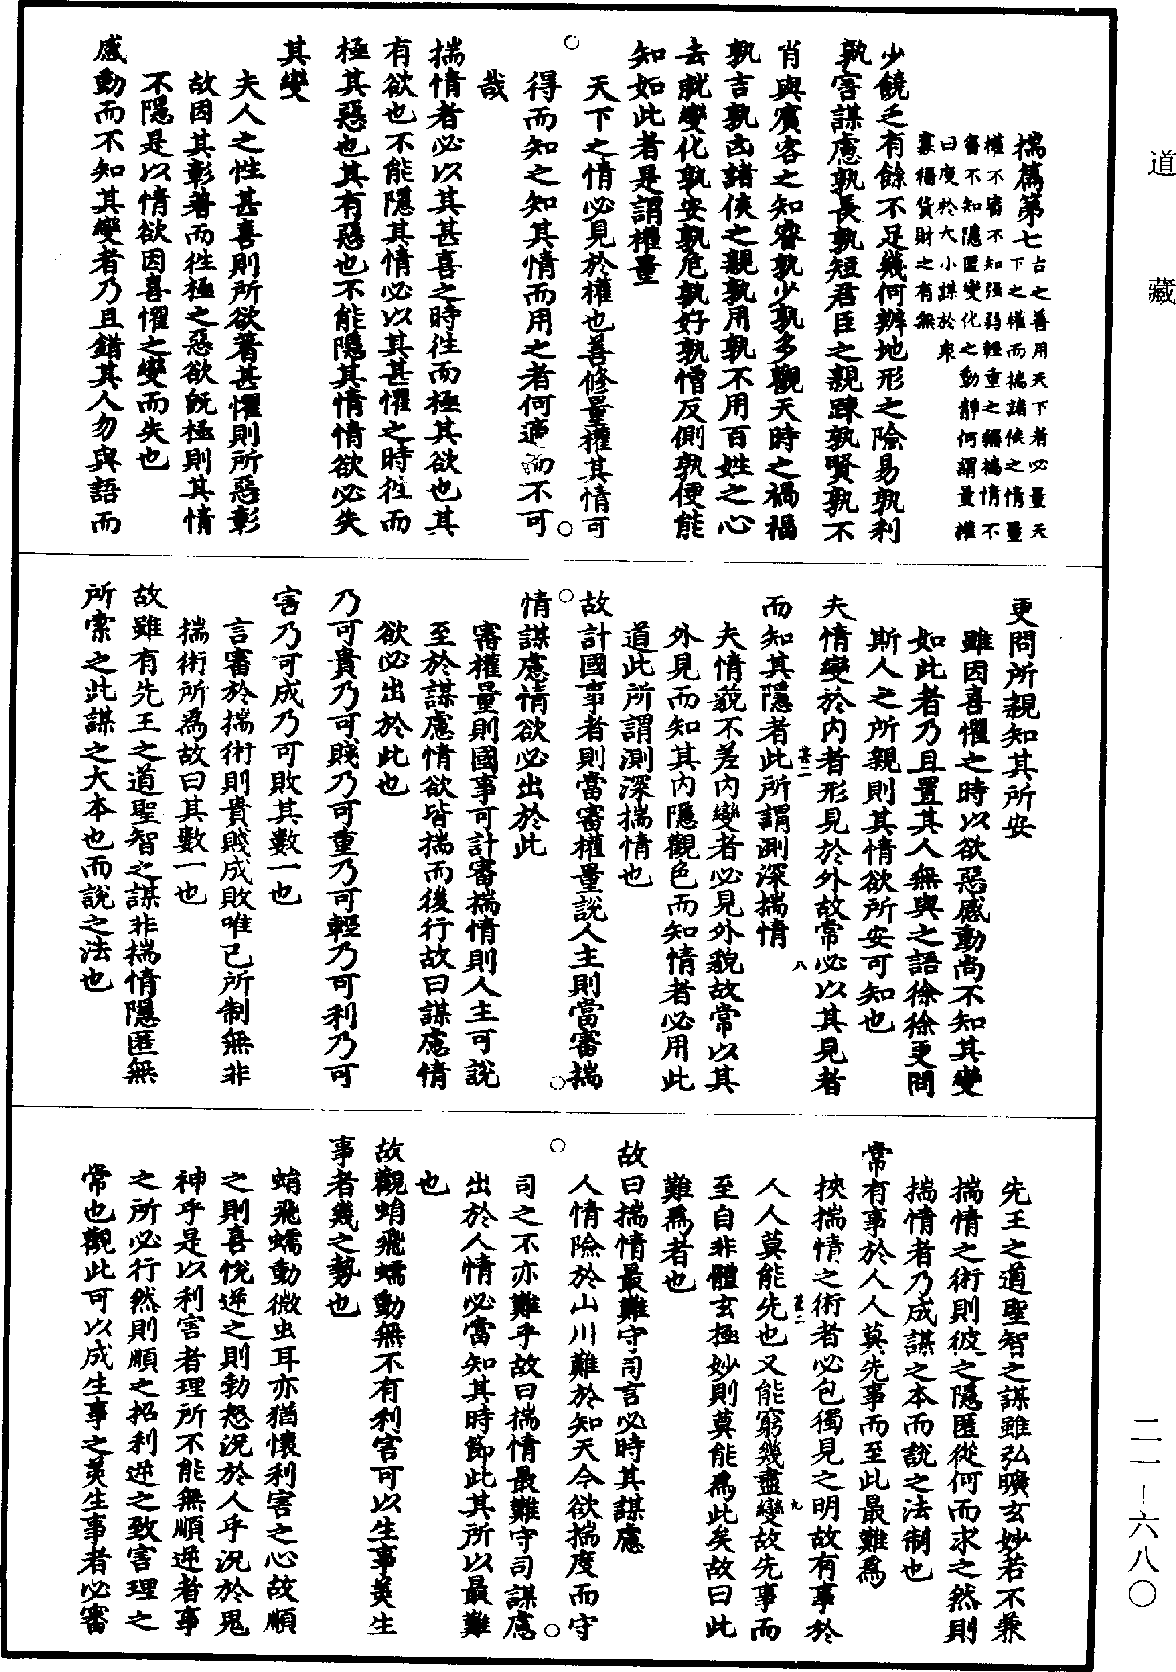 道藏
揣篇第七古之善用天下者必量天
下之權而揣諸侯之情量
權不審不知强弱輕重之稱揣情不
審不知隱匿變化之動靜何謂量權
曰度於大小謀於衆
寡稱貨財之有無
少饒乏有餘不足幾何辨地形之險易孰利
孰害謀慮孰長孰短君臣之親踈孰賢孰不
肖與賓客之知睿孰少孰多觀天時之禍福
孰吉孰凶諸侯之親孰用孰不用百姓之心
去就變化孰安孰危孰好孰憎反側孰便能
知如此者是謂權量
天下之情必見於權也善修量權其情可
得而知之知其情而用之者何適而不可
哉
揣情者必以其甚喜之時往而極其欲也其
有欲也不能隱其情必以其甚懼之時往而
極其惡也其有惡也不能隱其情情欲必失
其變
夫人之性甚喜則所欲著甚懼則所惡彰
故因其彰著而往極之惡欲旣極則其情
不隱是以情欲因喜懼之變而失也
感動而不知其變者乃且錯其人勿與語而
更問所親知其所安
雖因喜懼之時以欲惡感動尚不知其變
如此者乃且置其人無與之語徐徐更問
斯人之所親則其情欲所安可知也
夫情變於内者形見於外故常必以其見者
而知其隱者此所謂測深揣情
夫情貌不差内變者必見外貌故常以其
外見而知其内隱觀色而知情者必用此
道此所謂測深揣情也
故計國事者則當審權量說人主則當審揣
情謀慮情欲必出於此
審權量則國事可計審揣情則人主可說
至於謀慮情欲皆揣而後行故曰謀慮情
欲必出於此也
乃可貴乃可賤乃可重乃可輕乃可利乃可
害乃可成乃可敗其數一也
言審於揣術則貴賤成敗唯己所制無非
揣術所爲故曰其數一也
故雖有先王之道聖智之謀非揣情隱匿無
所索之此謀之大本也而說之法也
先王之道聖智之謀雖弘曠玄妙若不兼
揣情之術則彼之隱匿從何而求之然則
揣情者乃成謀之本而說之法制也
常有事於人人莫先事而至此最難爲
挾揣情之術者必包獨見之明故有事於
人人莫能先也又能窮幾盡變故先事而
至自非體玄極妙則莫能爲此矣故曰此
難爲者也
故曰揣情最難守司言必時其謀慮
人情險於山川難於知天今欲揣度而守
司之不亦難乎故曰揣情最難守司謀慮
出於人情必當知其時節此其所以最難
也
故觀蜎飛蠕動無不有利害可以生事美生
事者幾之勢也
蜎飛蠕動微虫耳亦猶懷利害之心故順
之則喜悅逆之則勃怒況於人乎況於鬼
神乎是以利害者理所不能無順逆者事
之所必行然則順之招利逆之致害理之
常也觀此可以成生事之美生事者必審
二一—六八〇